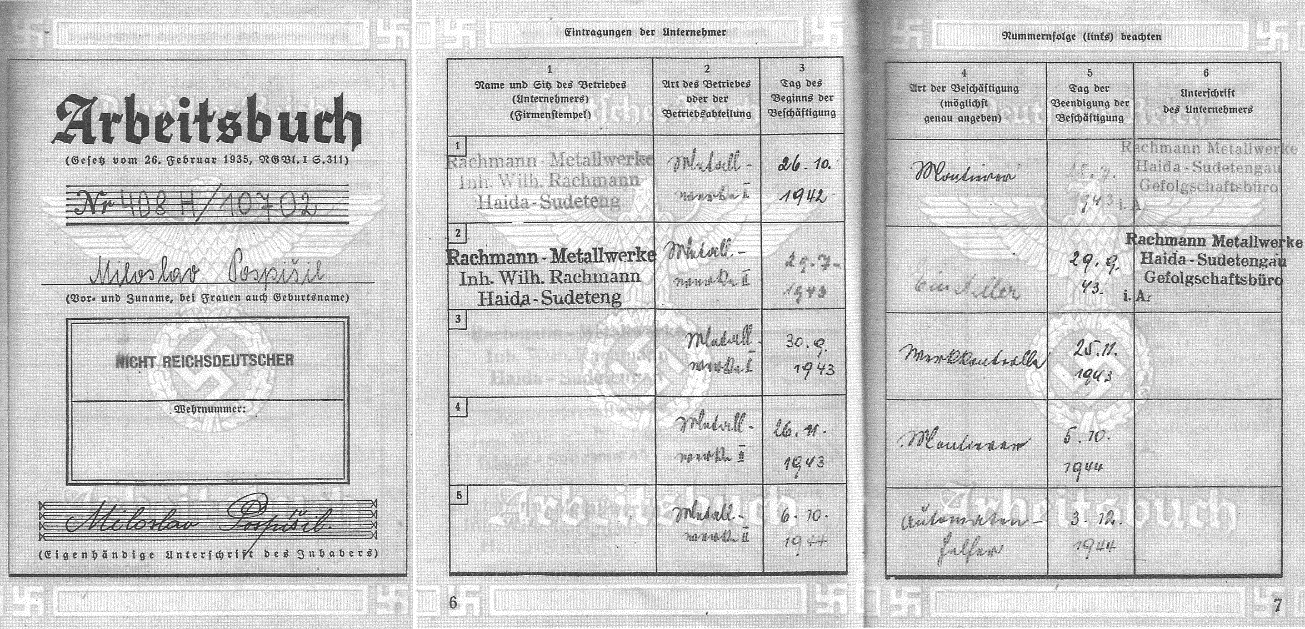 Arbeitsbuch
(Gesetz vom 26. Februar 1935, RGBl. I S.311)
Nr 408 H/10702
Miloslav Pospíšil
(Vor- und Zuname, bei Frauen auch Geburtsname)
NICHT REICHSDEUTSCHER
Wehrnummer:
Miloslav Pospíšil.
(Eigenhändige Unterschrift des Inhabers)
Eintragungen der Unternehmer
1
Name und Sitz des Betriebes
(Unternehmers)
(Firmenstempel)
2
Art des Betriebes
oder der
Betriebsabteilung
3
Tag des
Beginns der
Beschäftigung
1
Rachmann-Metallwerke
Inh. Wilh. Rachmann
Haida-Sudeteng
Metall-
werke I
26. 10.
1942
2
Rachmann-Metallwerke
Inh. Wilh. Rachmann
Haida-Sudeteng
Metall-
werke II
29. 7.
1943
3
Metall-
werke I
30. 9.
1943
4
Metall-
werke II
26. 11.
1943
5
Metall-
werke II
6. 10.
1944
6
Nummernfolge (links) beachten
4
Art der Beschäftigung
(möglichst
genau angeben)
5
Tag der
Beendigung der
Beschäftigung
6
Unterschrift
des Unternehmers
Montierer
1943
Rachmann Metallwerke
Haida-Sudetengau
Gefolgschaftsbüro
i. A.
29. 9.
43.
Rachmann Metallwerke
Haida-Sudetengau
Gefolgschaftsbüro
i. A.
Werkkontrolle
25. 11.
1943
Montierer
5. 10.
1944
Automaten-
helfer
3. 12.
1944
7